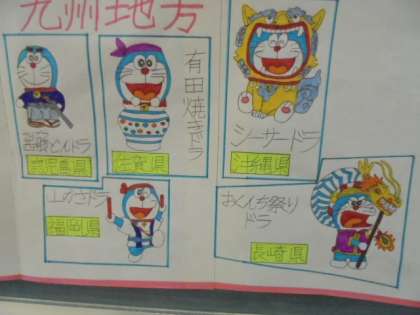 九州地方
有田焼きドラ
シーサードラ
鹿児島県
佐賀県
沖縄県
山かさドラ
おくんち祭り
ドラ
福岡県
長崎県